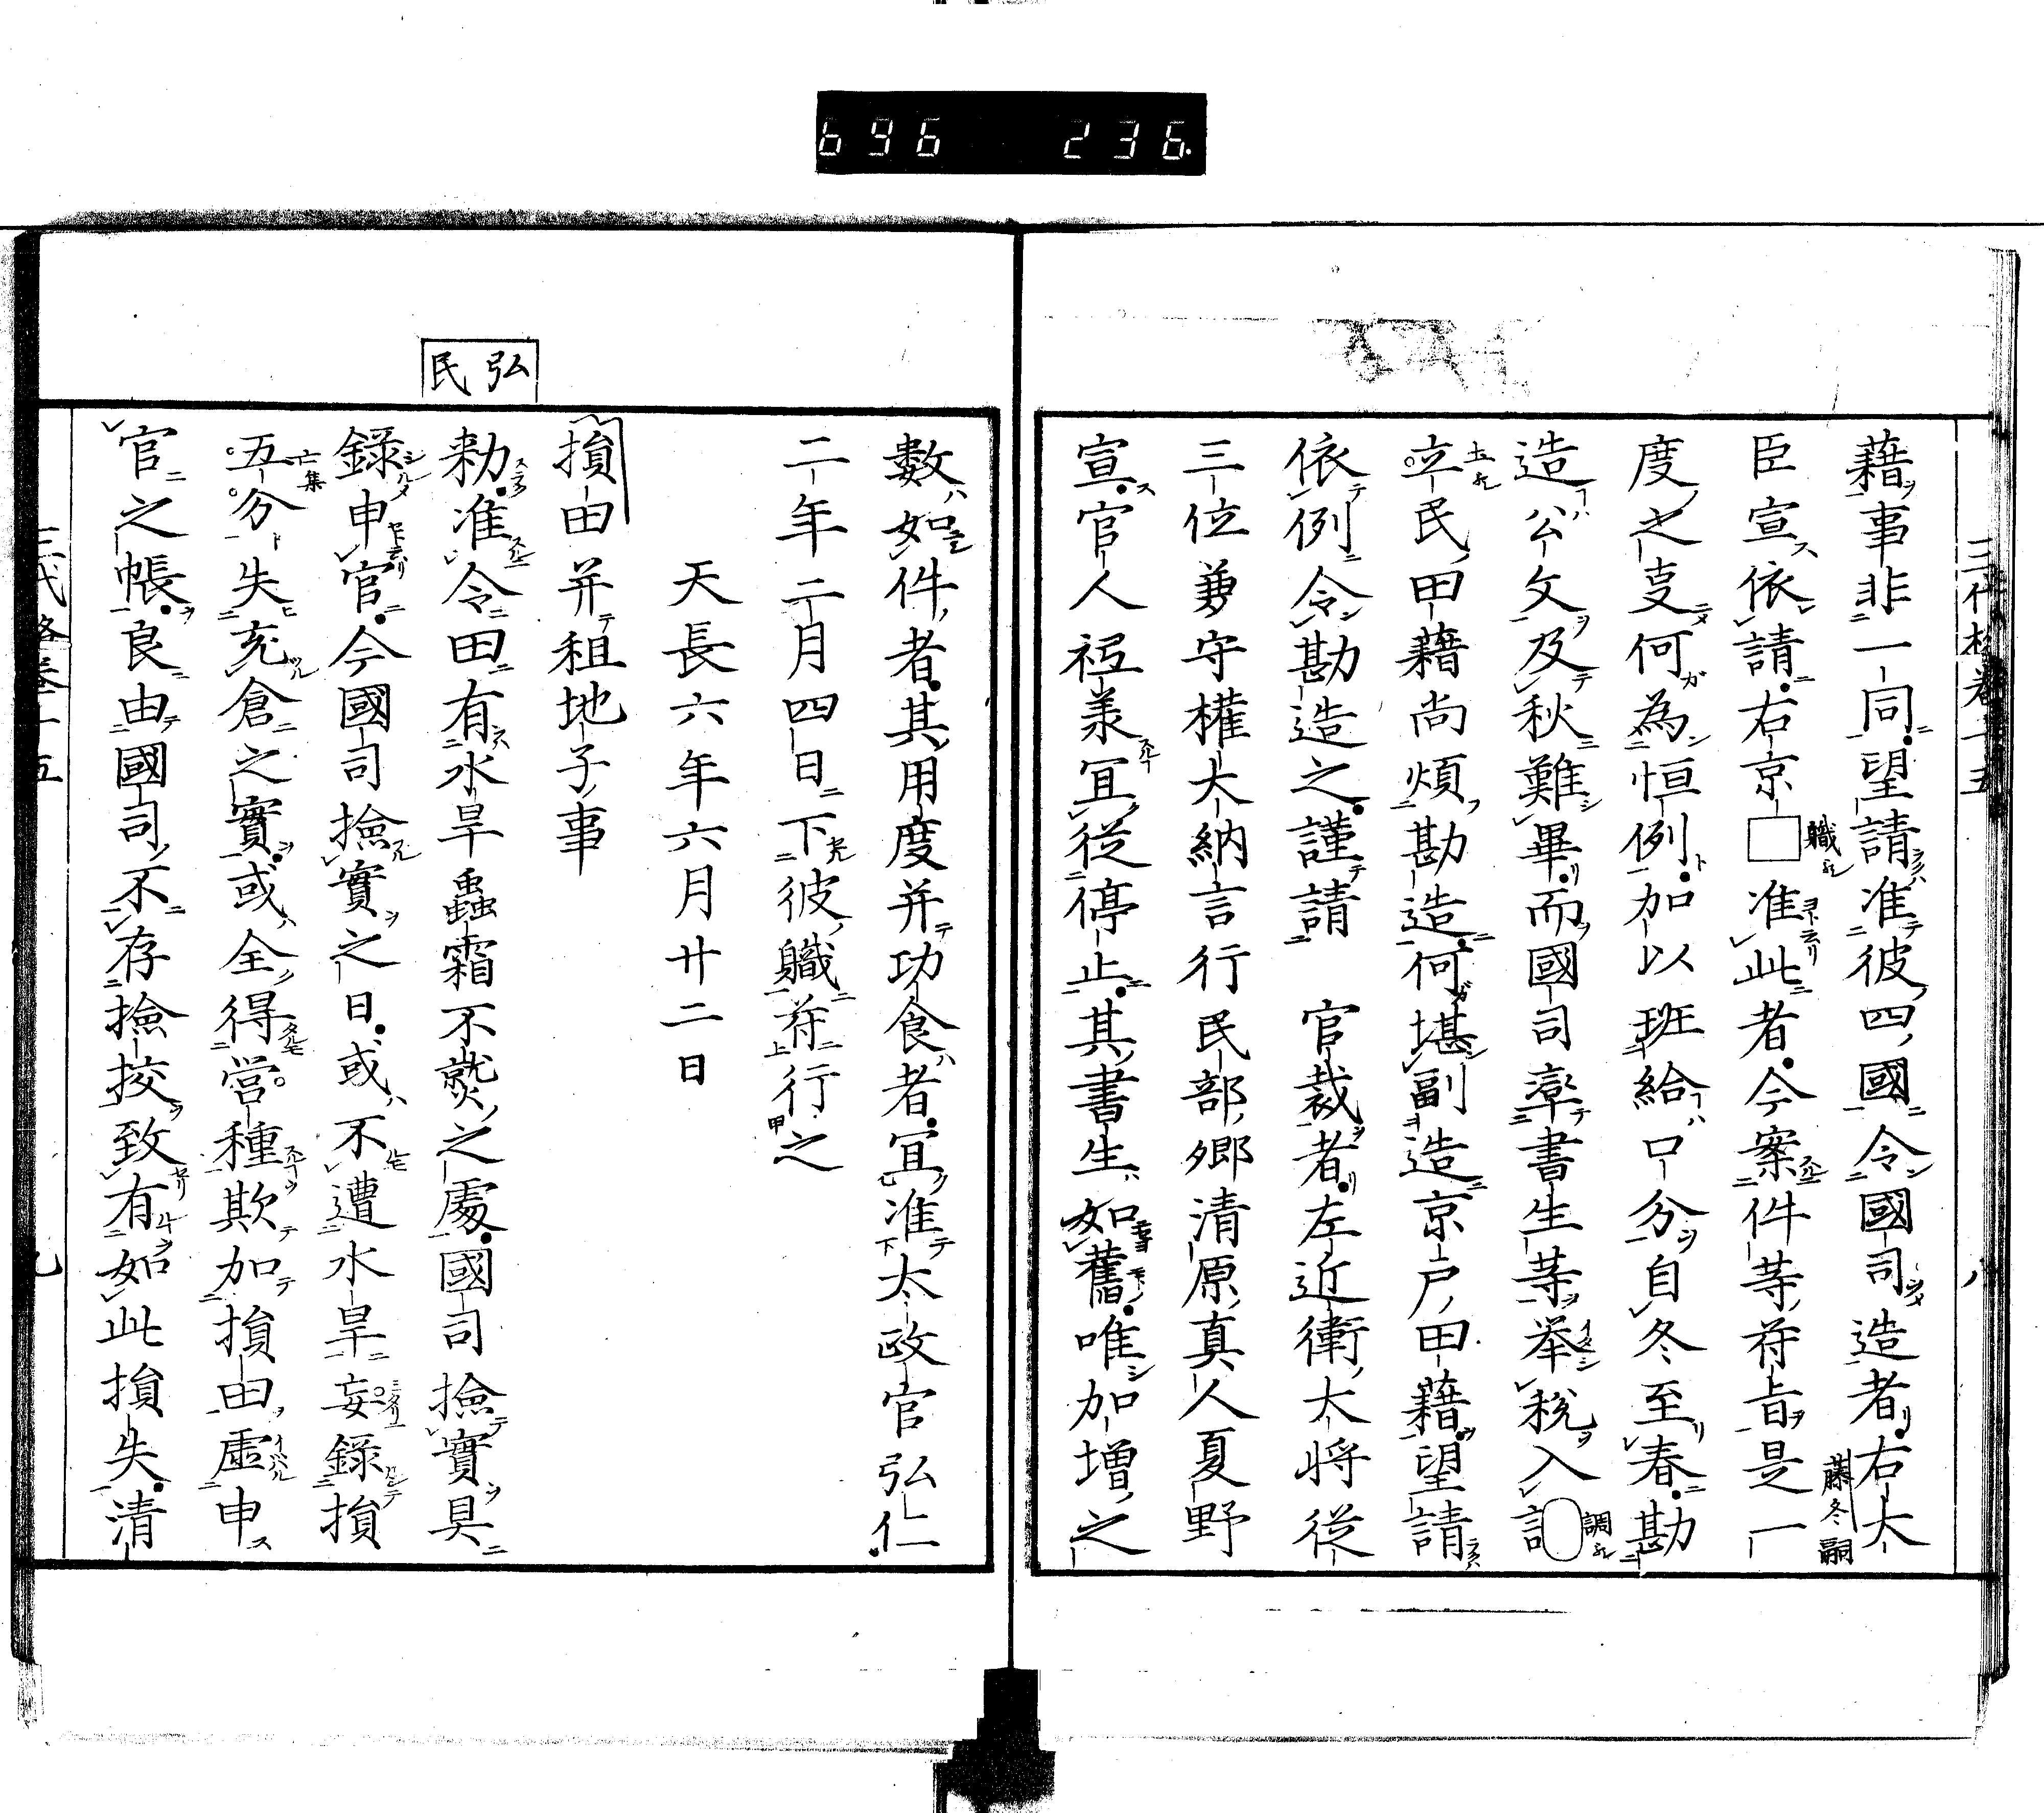 696 236.
三代格卷十五 八
藉事非一同望請准彼四國令國司造者右大
藤冬嗣
臣宣依請右京□准此者今案件等苻旨是一
職
度之㕝何為恒例加以班給口分自冬至春勘
造公文及秋難畢而國司率書生等举税入
調
立民田藉尚煩勘造何堪副造京戸田藉望請
依例令勘造之謹請 官裁者左近衛大将従
三位兼守權大納言行民部卿清原真人夏野
宣官人祗羕冝従停止其書生如舊唯加增之
數如件者其用度并功食者冝准太政官弘仁
二年二月四日下彼職苻行之
天長六年六月廿二日
弘民
損田并租地子事
勅准令田有水旱蟲霜不熟之處國司撿實具
録申官今國司撿實之日或不遭水旱妄録損
五分失充倉之實或全得営種欺加損田虚申
亡集
官之帳良由國司不存撿挍致有如此損失清
三代格卷十五 九